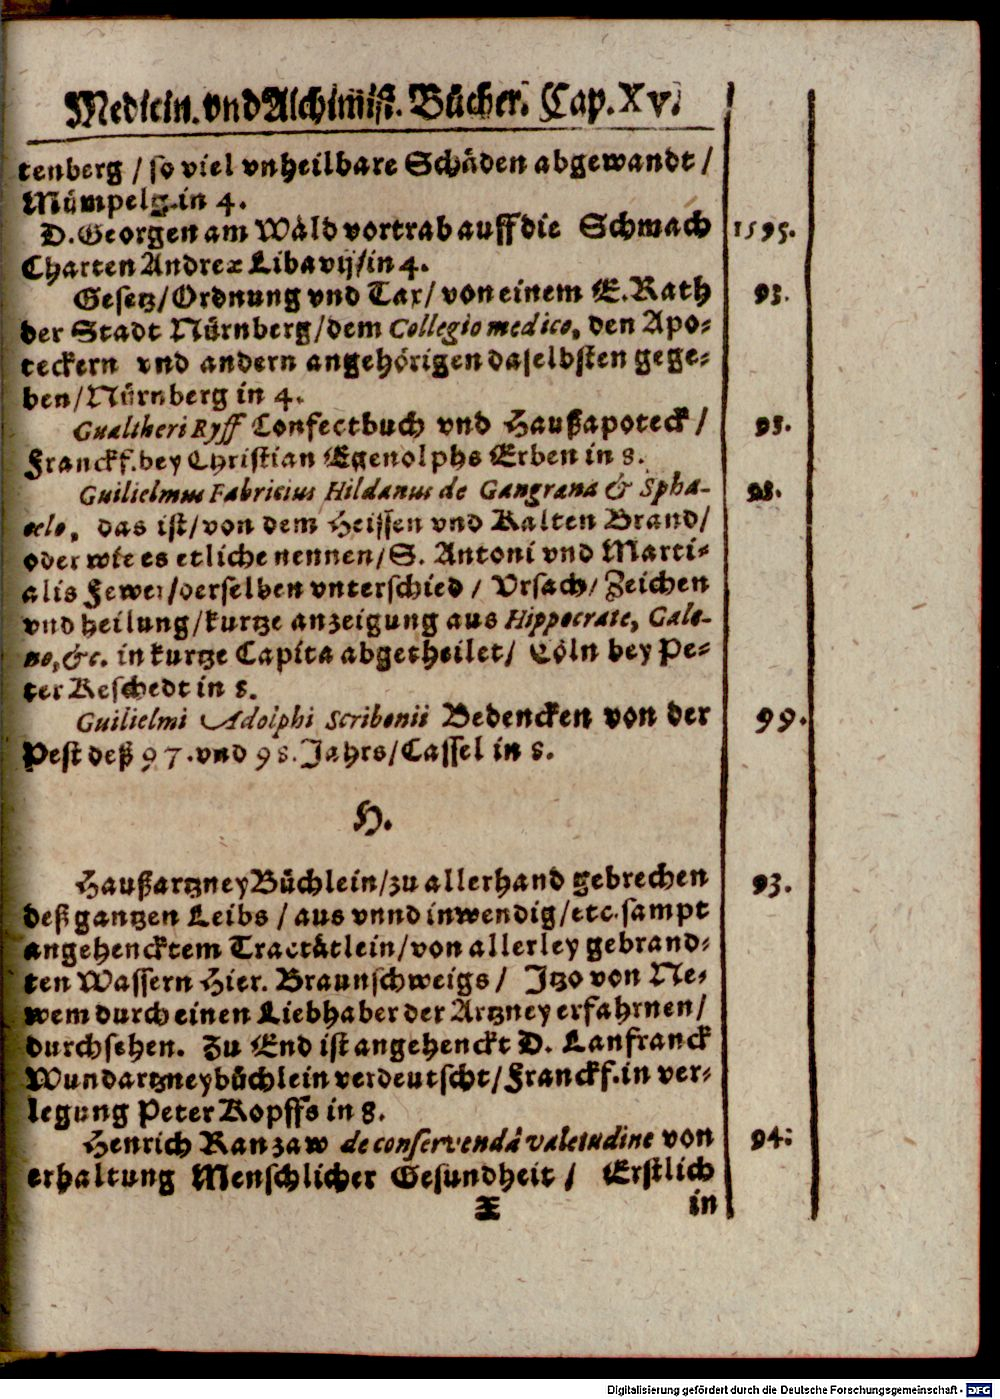 Medicin. vnd Alchimist. Bücher. Cap. XV.
tenberg / so viel vnheilbare Schäden abgewandt /
Mümpelg. in 4.
D. Georgen am Wald vortrab auff die Schmach 1595.
Charten Andreæ Libavij / in 4.
Gesetz / Ordnung vnd Tax / von einem E. Rath 93.
der Stadt Nürnberg / dem Collegio medico, den Apo-
teckern vnd andern angehörigen daselbsten gege-
ben / Nürnberg in 4.
Gualtheri Ryff Confectbuch vnd Haußapoteck / 95.
Franckf. bey Christian Egenolphs Erben in 8.
Guilielmus Fabricius Hildanus de Gangrana & Spha- 98.
celo, das ist / von dem Heissen vnd Kalten Brand /
oder wie es etliche nennen / S. Antoni vnd Marti-
alis Fewer / derselben vnterschied / Vrsach / Zeichen
vnd heilung / kurtze anzeigung aus Hippocrate, Gale-
no, &c. in kurtze Capita abgetheilet / Cöln bey Pe-
ter Keschedt in 8.
Guilielmi Adolphi Scribonii Bedencken von der 99.
Pest deß 97. vnd 98. Jahrs / Cassel in 8.
H.
Haußartzney Büchlein / zu allerhand gebrechen 93.
deß gantzen Leibs / aus vnnd inwendig / etc. sampt
angehencktem Tractätlein / von allerley gebrand-
ten Wassern Hier. Braunschweigs / Itzo von Ne-
wem durch einen Liebhaber der Artzney erfahrnen /
durchsehen. Zu End ist angehenckt D. Lanfranck
Wundartzneybüchlein verdeutscht / Franckf. in ver-
legung Peter Kopffs in 8.
Henrich Ranzaw de conservendâ valetudine von 94.
erhaltung Menschlicher Gesundheit / Erstlich
X in
Digitalisierung gefördert durch die Deutsche Forschungsgemeinschaft - DFG